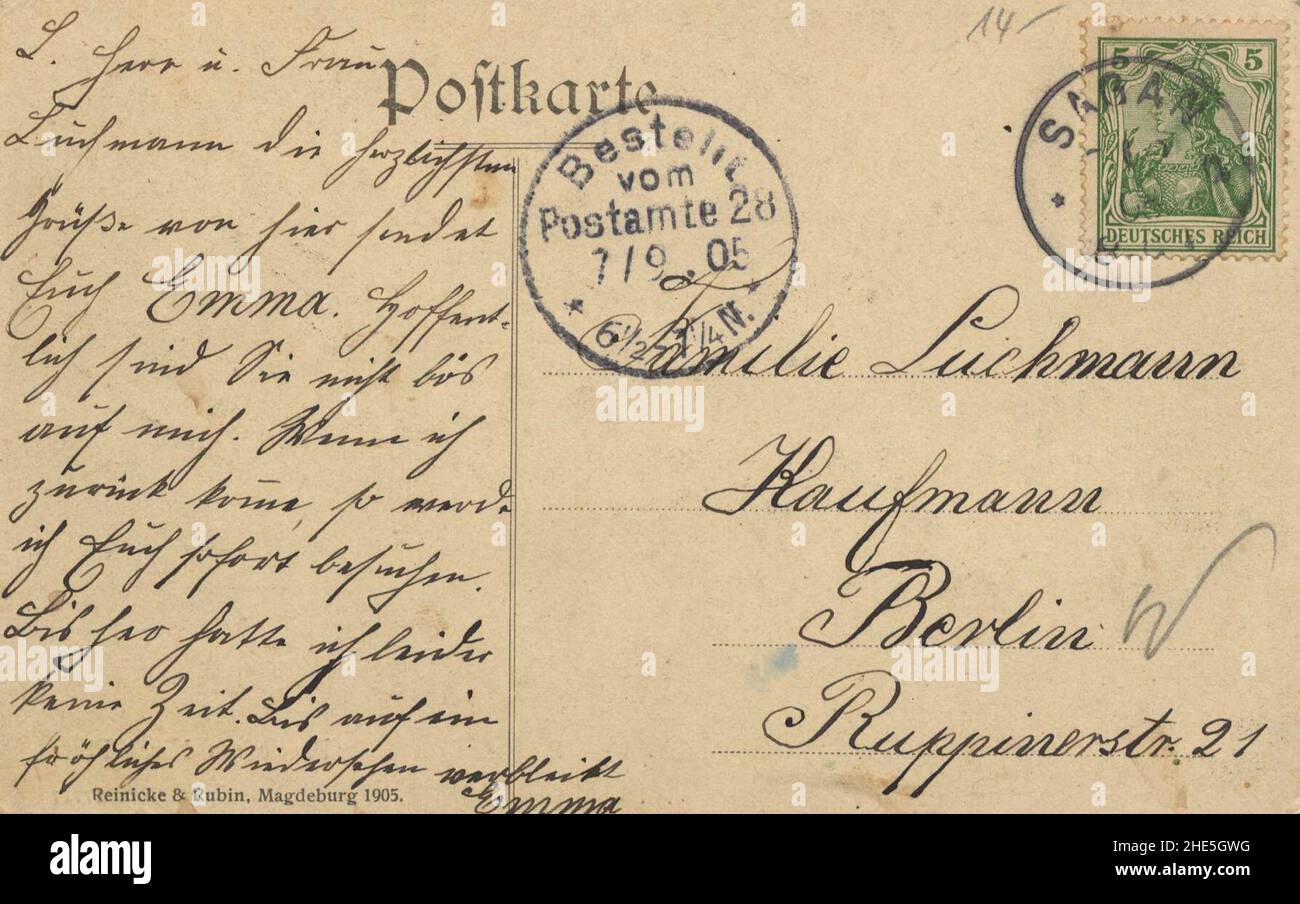 14-
L. Herr u. Frau
Luchmann die herzlichsten
Grüße von hier sendet
Euch Emma. Hoffent-
lich sind Sie nicht bös
auf mich. Wenn ich
zurück komme, so werde
ich Euch sofort besuchen.
Bisher hatte ich leider
keine Zeit. Bis auf ein
fröhliches Wiedersehen verbleibt
Emma
Reinicke & Rubin, Magdeburg 1905.
Postkarte
Bestellt
vom
Postamte 28
7/9.05
6½-7¼N.
5 5
DEUTSCHES REICH
Familie Luchmann
Kaufmann
Berlin
Ruppinerstr. 21
alamy
Image ID: 2HE5GWG
www.alamy.com